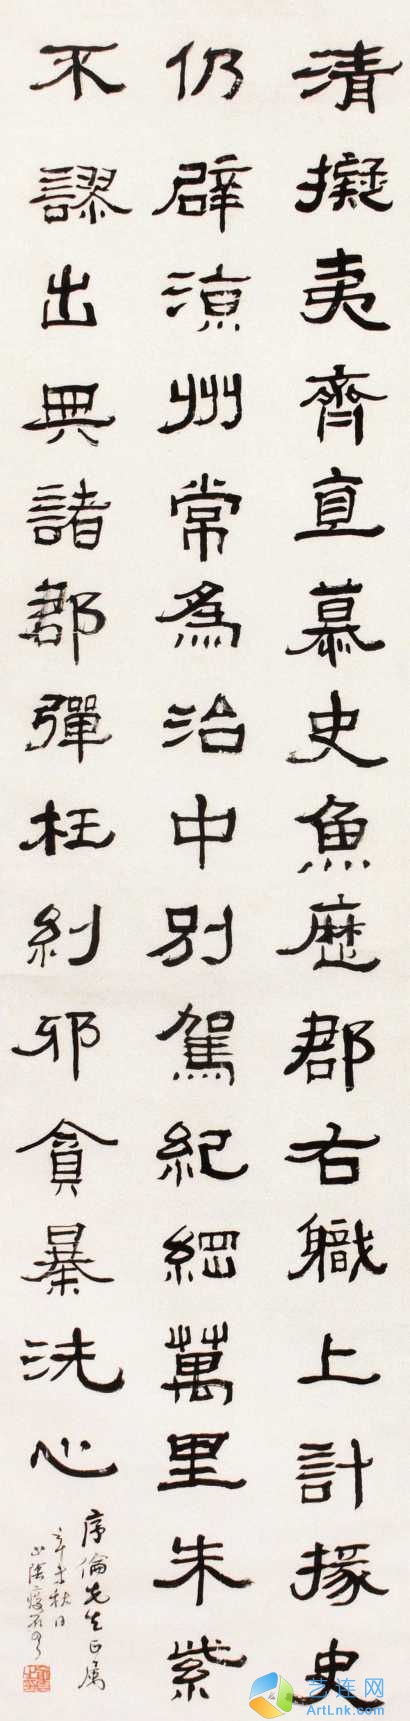 清擬夷齊直慕史魚歷郡右職上計掾史
仍辟涼州常為治中別駕紀綱萬里朱紫
不謬出典諸郡彈枉糾邪貪暴洗心
序倫先生正屬
辛未秋日
山陰
艺连网
ArtLnk.com